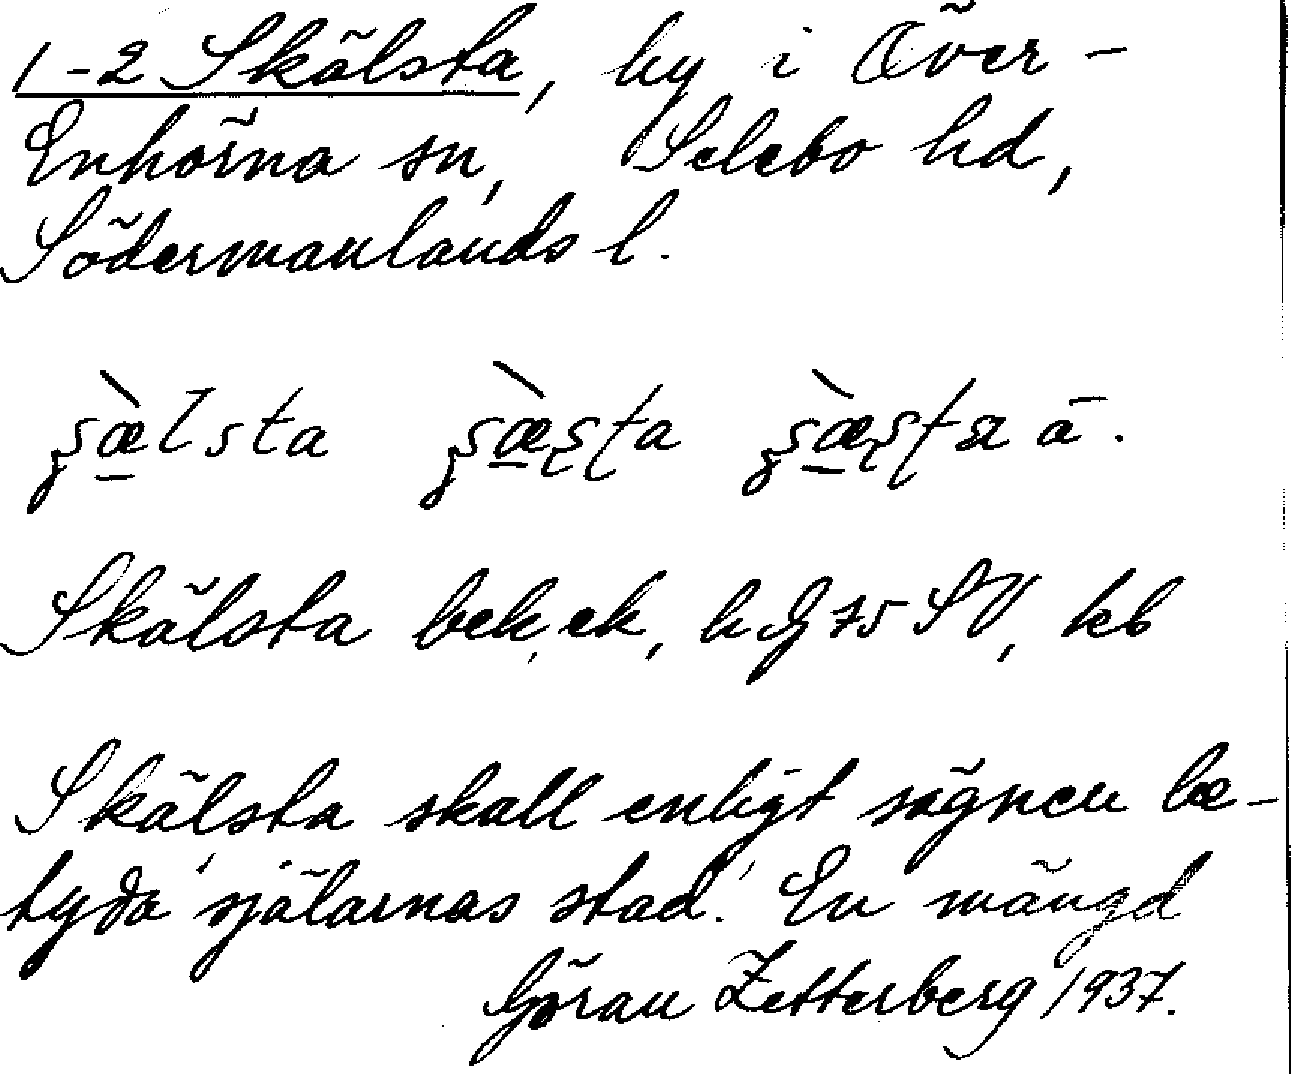 1-2 Skälsta, by i Över-
Enhörna sn, Selebo hd,
Södermanlands l.
Skälsta bek, ek, hG 75 SV, kb
Skälsta skall enligt sägnen be-
tyda 'själarnas stad.' En mängd
Göran Zetterberg 1937.